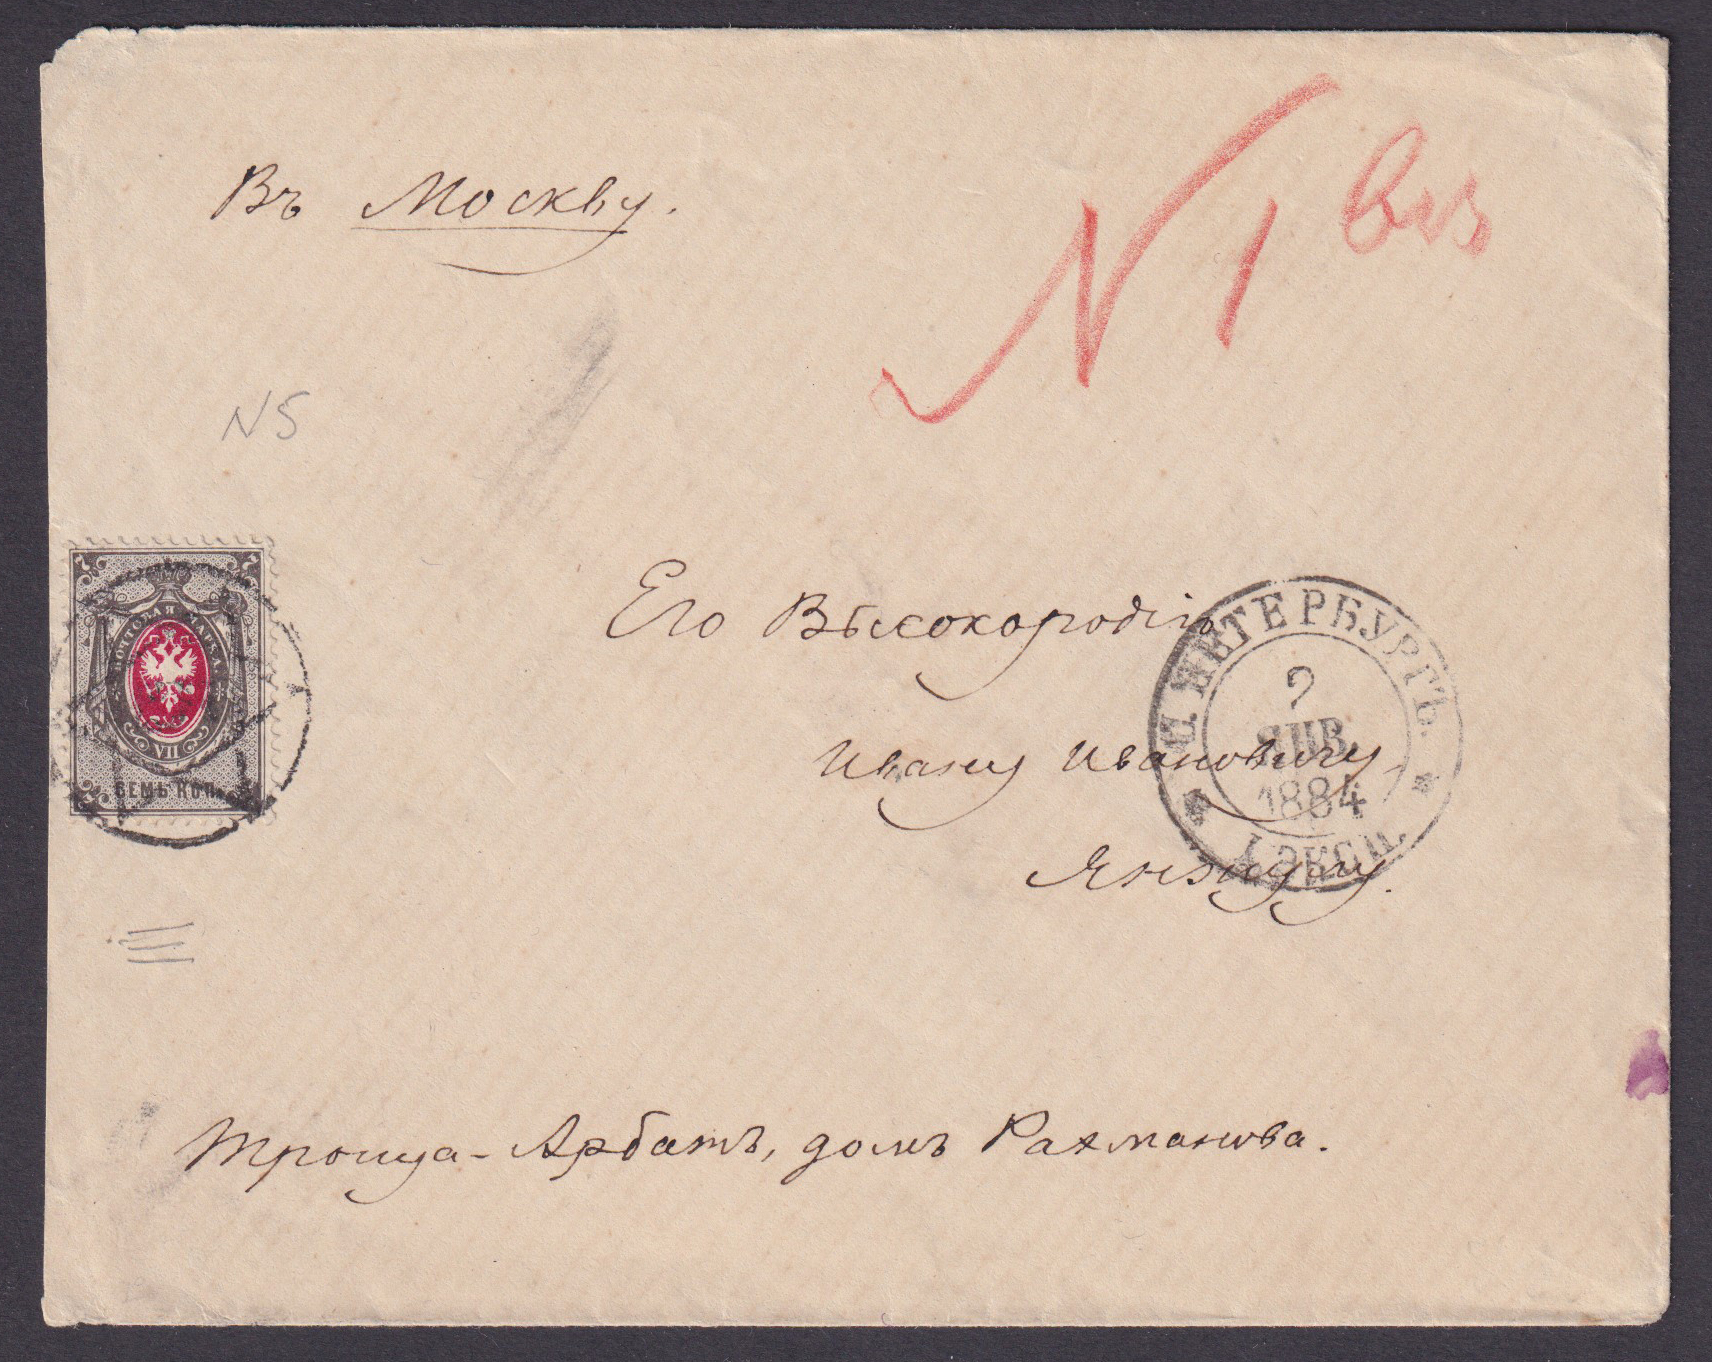 Въ Москву.
N 1 bis
N5
7 7
ПОЧТОВАЯ МАРКА.
VII
СЕМЬ КОП.
Его Высокородію
Ивану Ивановичу
Янжулу.
С. ПЕТЕРБУРГЪ.
2
ЯНВ.
1884
Троица-Арбатъ, домъ Рахманова.